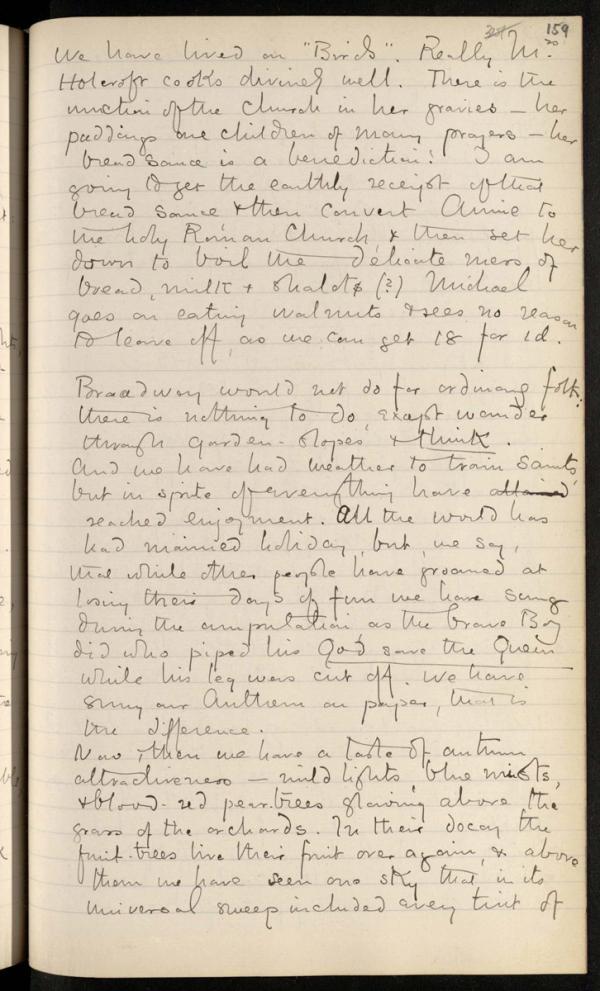 159
We have lived on "Birds". Really Mrs
Holcroft cooks divinely well. There is the
unction of the Church in her gravies — her
puddings are children of many prayers — her
bread sauce is a benediction! I am
going to get the earthly receipt of that
bread sauce & then convert Annie to
the holy Roman Church, & then set her
down to boil the delicate mess of
bread, milk & shalots (?) Michael
goes on eating walnuts & sees no reason
to leave off, as we can get 18 for 1d.
Broadway would not do for ordinary folk:
there is nothing to do, except wander
through garden-slopes & think.
And we have had weather to train saints,
but in spite of everything have attained
reached enjoyment. All the world has
had maimed holiday, but, we say,
that while other people have groaned at
losing their days of fun we have sung
during the amputation as the brave Boy
did who piped his God save the Queen
while his leg was cut off. We have
sung our Anthem on paper, that is
the difference.
Now & then we have a taste of autumn
attractiveness — mild lights, blue mists,
& blood-red pear-trees glowing above the
grass of the orchards. In their decay the
fruit-trees live their fruit over again, & above
them we have seen one sky that in its
universal sweep included every tint of